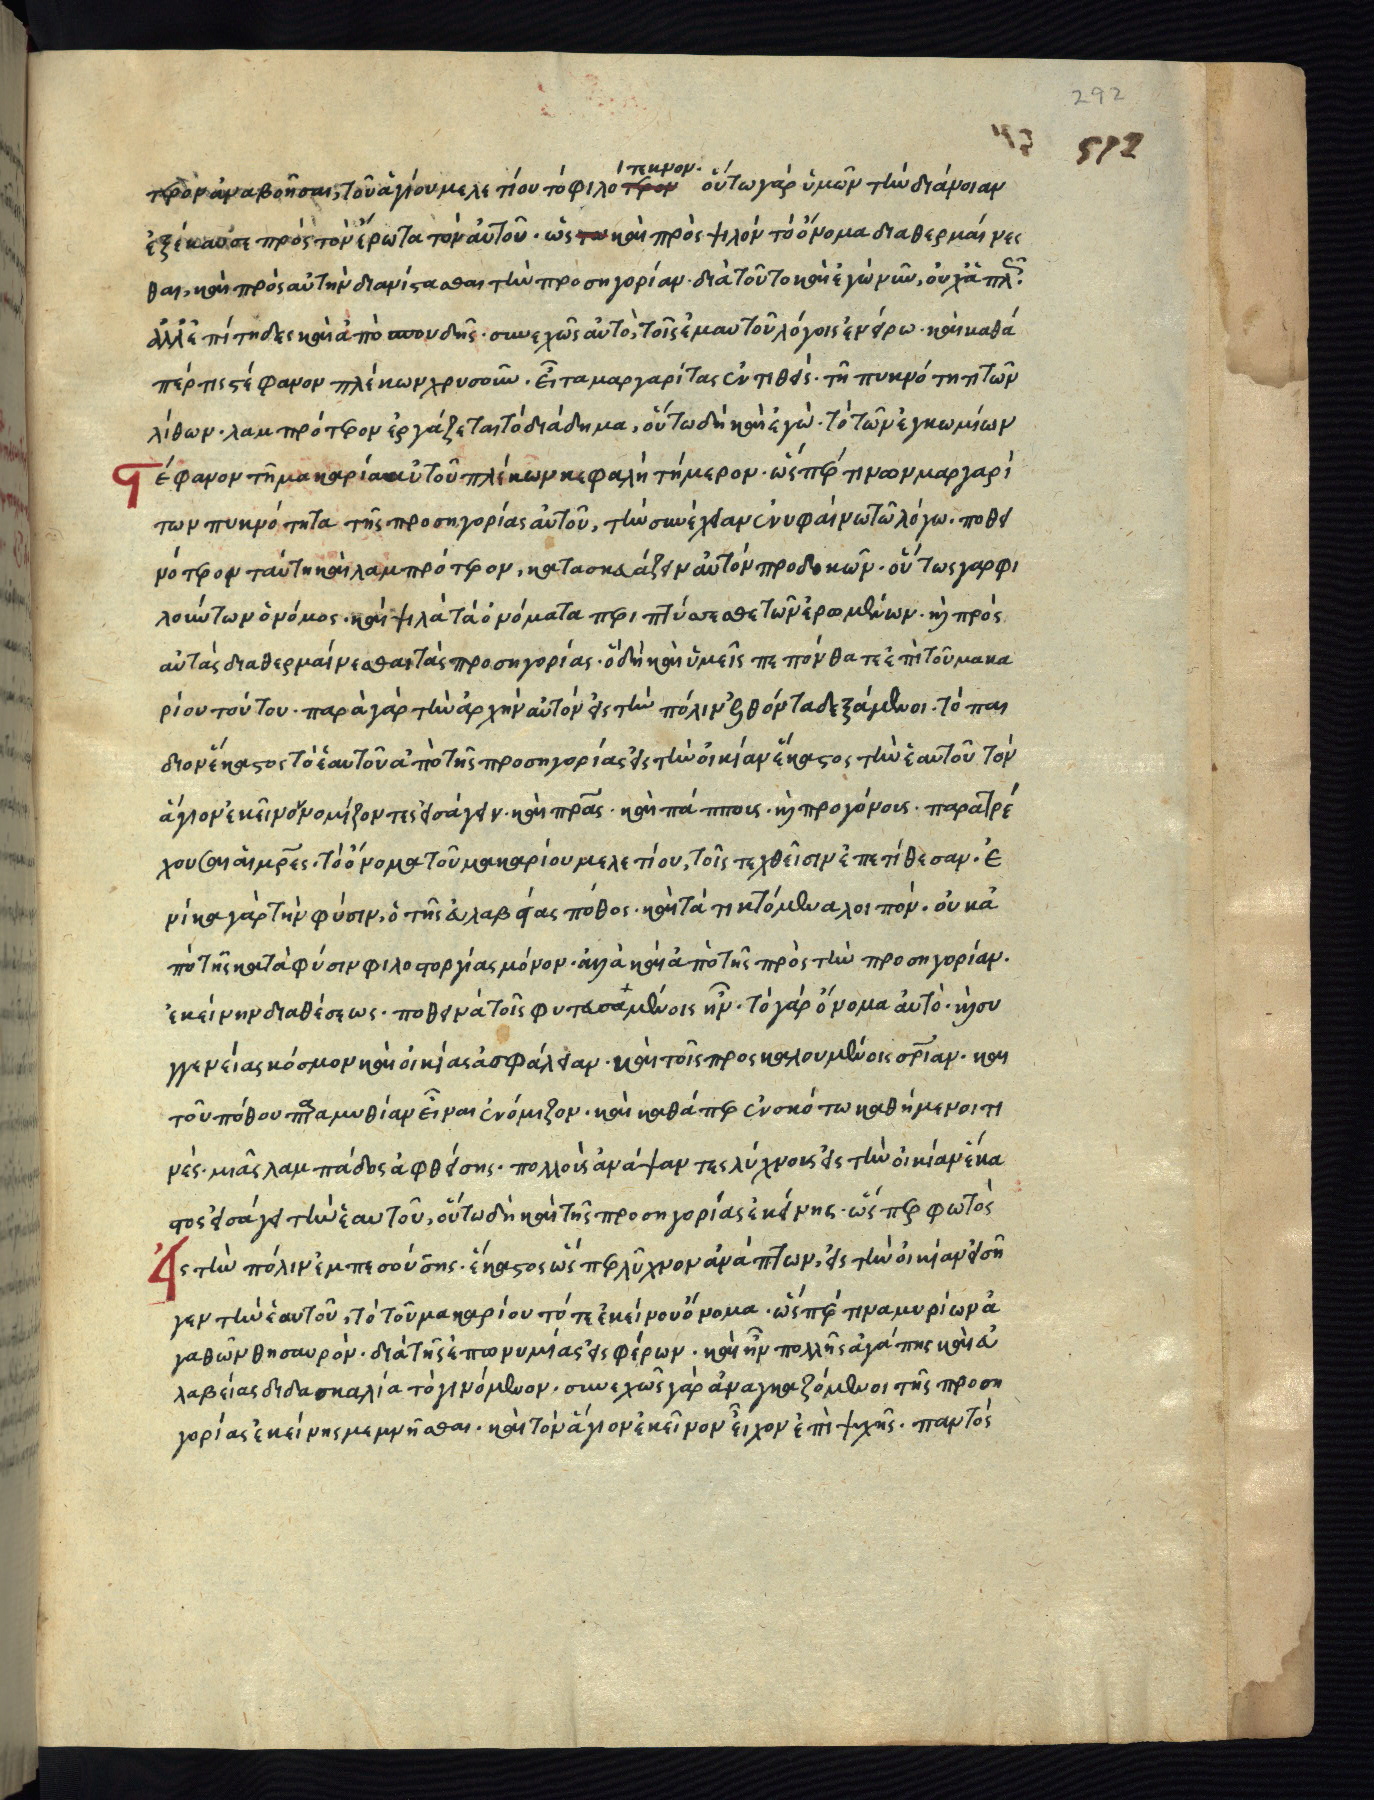 292
512
τερον ἀναβοῆσαι, τοῦ ἁγίου μελετίου τὸ φιλότεκνον. οὕτω γὰρ ὑμῶν τὴν διάνοιαν
ἐξέκαυσε πρὸς τὸν ἔρωτα τὸν αὐτοῦ · ὡς καὶ πρὸς ψιλὸν τὸ ὄνομα διαθερμαίνεσ
θαι, καὶ πρὸς αὐτὴν διανίστασθαι τὴν προσηγορίαν · διὰ τοῦτο καὶ ἐγὼ νῦν, οὐχ ἁπλῶς.
ἀλλ' ἐπίτηδες καὶ ἀπὸ σπουδῆς · συνεχῶς αὐτὸ, τοῖς ἐμαυτοῦ λόγοις ἐνείρω · καὶ καθά
πέρ τις στέφανον πλέκων χρυσοῦν · εἶτα μαργαρίτας ἐντιθείς · τῆ πυκνότητι τῶν
λίθων · λαμπρότερον ἐργάζεται τὸ διάδημα, οὕτω δὴ καὶ ἐγὼ · τὸ τῶν ἐγκωμίων
στέφανον τῆ μακαρία αὐτοῦ πλέκων κεφαλῆ τήμερον · ὥσπερ τινῶν μαργαρί
των πυκνότητα τῆς προσηγορίας αὐτοῦ, τὴν συνέχειαν ἐνυφαίνω τῶ λόγω · ποθει
νότερον ταύτη καὶ λαμπρότερον, κατασκευάζειν αὐτὸν προσδοκῶν · οὕτως γαρ φι
λούντων ὁ νόμος · καὶ ψιλὰ τὰ ὀνόματα περιπτύσσεσθε τῶν ἐρωμένων · καὶ πρὸς
αὐτὰς διαθερμαίνεσθαι τὰς προσηγορίας · ὃ δὴ καὶ ὑμεῖς πεπόνθατε ἐπὶ τοῦ μακα
ρίου τούτου · παρὰ γὰρ τὴν ἀρχὴν αὐτὸν εἰς τὴν πόλιν ἐλθόντα δεξάμενοι · τὸ παι
διον ἕκαστος τὸ ἑαυτοῦ ἀπὸ τῆς προσηγορίας εἰς τὴν οἰκίαν ἕκαστος τὴν ἑαυτοῦ τὸν
ἅγιον ἐκεῖνον νομίζοντες εἰσάγειν · καὶ πρας · καὶ πάππους · καὶ προγόνους · παρατρέ
χουσαι αἱ μρες · τὸ ὄνομα τοῦ μακαρίου μελετίου, τοῖς τεχθεῖσιν ἐπετίθεσαν · ἐ
νίκα γὰρ τὴν φύσιν, ὁ τῆς εὐλαβείας πόθος · καὶ τὰ τικτόμενα λοιπόν · οὐκ ἀ
πὸ τῆς κατὰ φύσιν φιλοστοργίας μόνον · ἀλλὰ καὶ ἀπὸ τῆς πρὸς τὴν προσηγορίαν ·
ἐκείνην διαθέσεως · ποθεινὰ τοῖς φυτευσαμένοις ἦν · τὸ γὰρ ὄνομα αὐτὸ · καὶ συ
γγενείας κόσμον καὶ οἰκίας ἀσφάλειαν · καὶ τοῖς προσκαλουμένοις σρίαν · καὶ
τοῦ πόθου παραμυθίαν εἶναι ἐνόμιζον · καὶ καθάπερ ἐν σκότω καθήμενοι τι
νές · μιᾶς λαμπάδος ἀφθείσης · πολλοὺς ἀνάψαντες λύχνους εἰς τὴν οἰκίαν ἕκα
στος εἰσάγει τὴν ἑαυτοῦ, οὕτω δὴ καὶ τῆς προσηγορίας ἐκείνης · ὥσπερ φωτὸς
εἰς τὴν πόλιν ἐμπεσούσης · ἕκαστος ὥσπερ λύχνον ἀνάπτων, εἰς τὴν οἰκίαν εἰσῆ
γεν τὴν ἑαυτοῦ, τὸ τοῦ μακαρίου τότε ἐκείνου ὄνομα · ὥσπερ τινα μυρίων ἀ
γαθῶν θησαυρόν · διὰ τῆς ἐπωνυμίας εἰσφέρων · καὶ ἦν πολλῆς ἀγάπης καὶ εὐ
λαβείας διδασκαλία τὸ γινόμενον · συνεχῶς γὰρ ἀναγκαζόμενοι τῆς προση
γορίας ἐκείνης μεμνῆσθαι · καὶ τὸν ἅγιον ἐκεῖνον εἶχον ἐπὶ ψχῆς · παντὸς